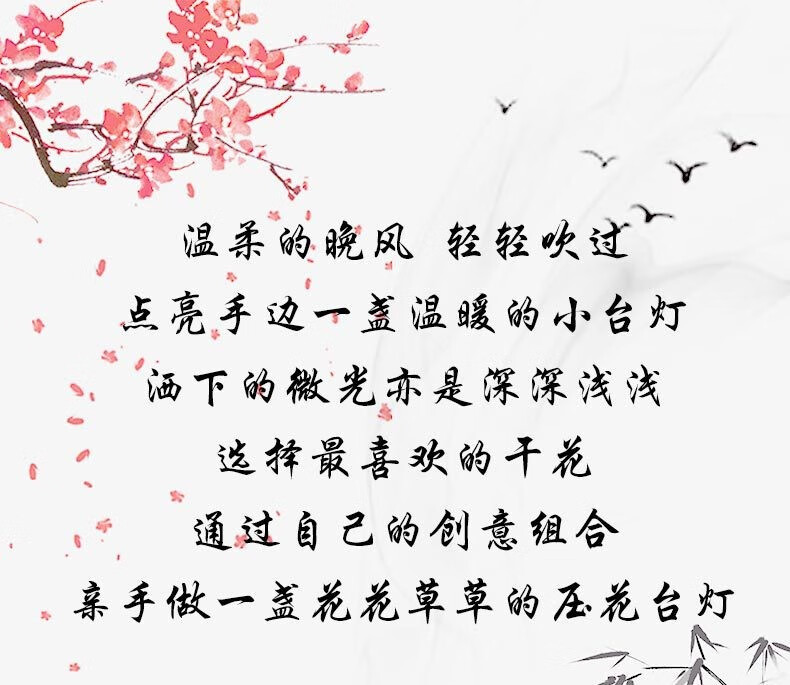 温柔的晚风 轻轻吹过
点亮手边一盏温暖的小台灯
洒下的微光亦是深深浅浅
选择最喜欢的干花
通过自己的创意组合
亲手做一盏花花草草的压花台灯